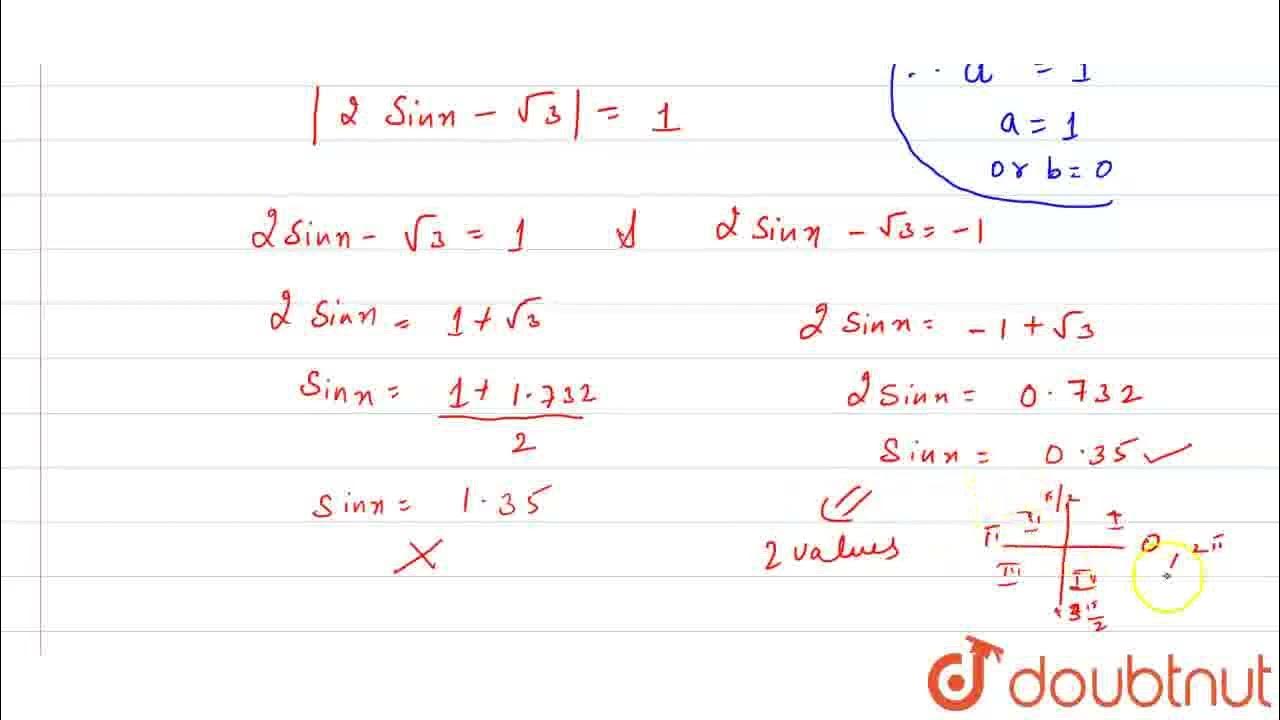 ∴ a = 1
a = 1
or b = 0
|2 Sinx - √3| = 1
2 Sinx - √3 = 1 & 2 Sinx - √3 = -1
2 Sinx = 1 + √3
2 Sinx = -1 + √3
Sinx = 1 + 1.732 / 2
2 Sinx = 0.732
Sinx = 1.35
Sinx = 0.35 ✓
X
2 values
π/2
II I
π 0, 2π
III IV
3π/2
doubtnut